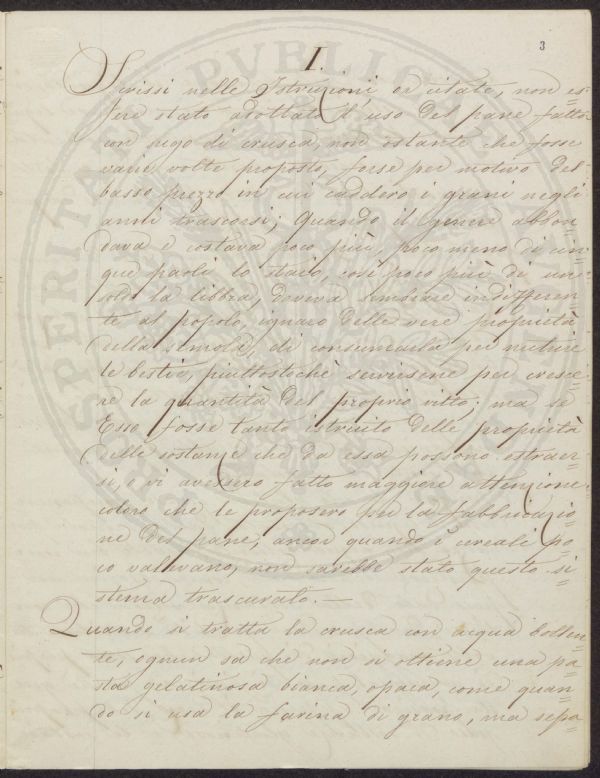 3
I.
Scrissi nelle Istruzioni or citate, non es=
sere stato adottato l'uso del pane fatto
con sugo di crusca, non ostante che fosse
varie volte proposto, forse per motivo del
basso prezzo in cui caddero i grani negli
anni trascorsi; Quando il genere abbon=
dava e costava poco più, poco meno di cin=
que paoli lo staio, così poco più di un
soldo la libbra, doveva sembrare indifferen=
te al popolo, ignaro delle vere proprietà
della semola, di consumarla per nutrire
le bestie, piuttostichè servirsene per cresce=
re la quantità del proprio vitto; ma se
Esso fosse tanto istruito delle proprietà
delle sostanze che da essa possono estraer=
si, e vi avessero fatto maggiore attenzione
coloro che le proposero per la fabbricazio=
ne del pane, ancor quando i cereali po=
co valevano, non sarebbe stato questo si=
stema trascurato. —
Quando si tratta la crusca con acqua bollen=
te, ognun sa che non si ottiene una pa=
sta gelatinosa bianca, opaca, come quan=
do si usa la farina di grano, ma sepa=
PROSPERITATI PVBLICAE